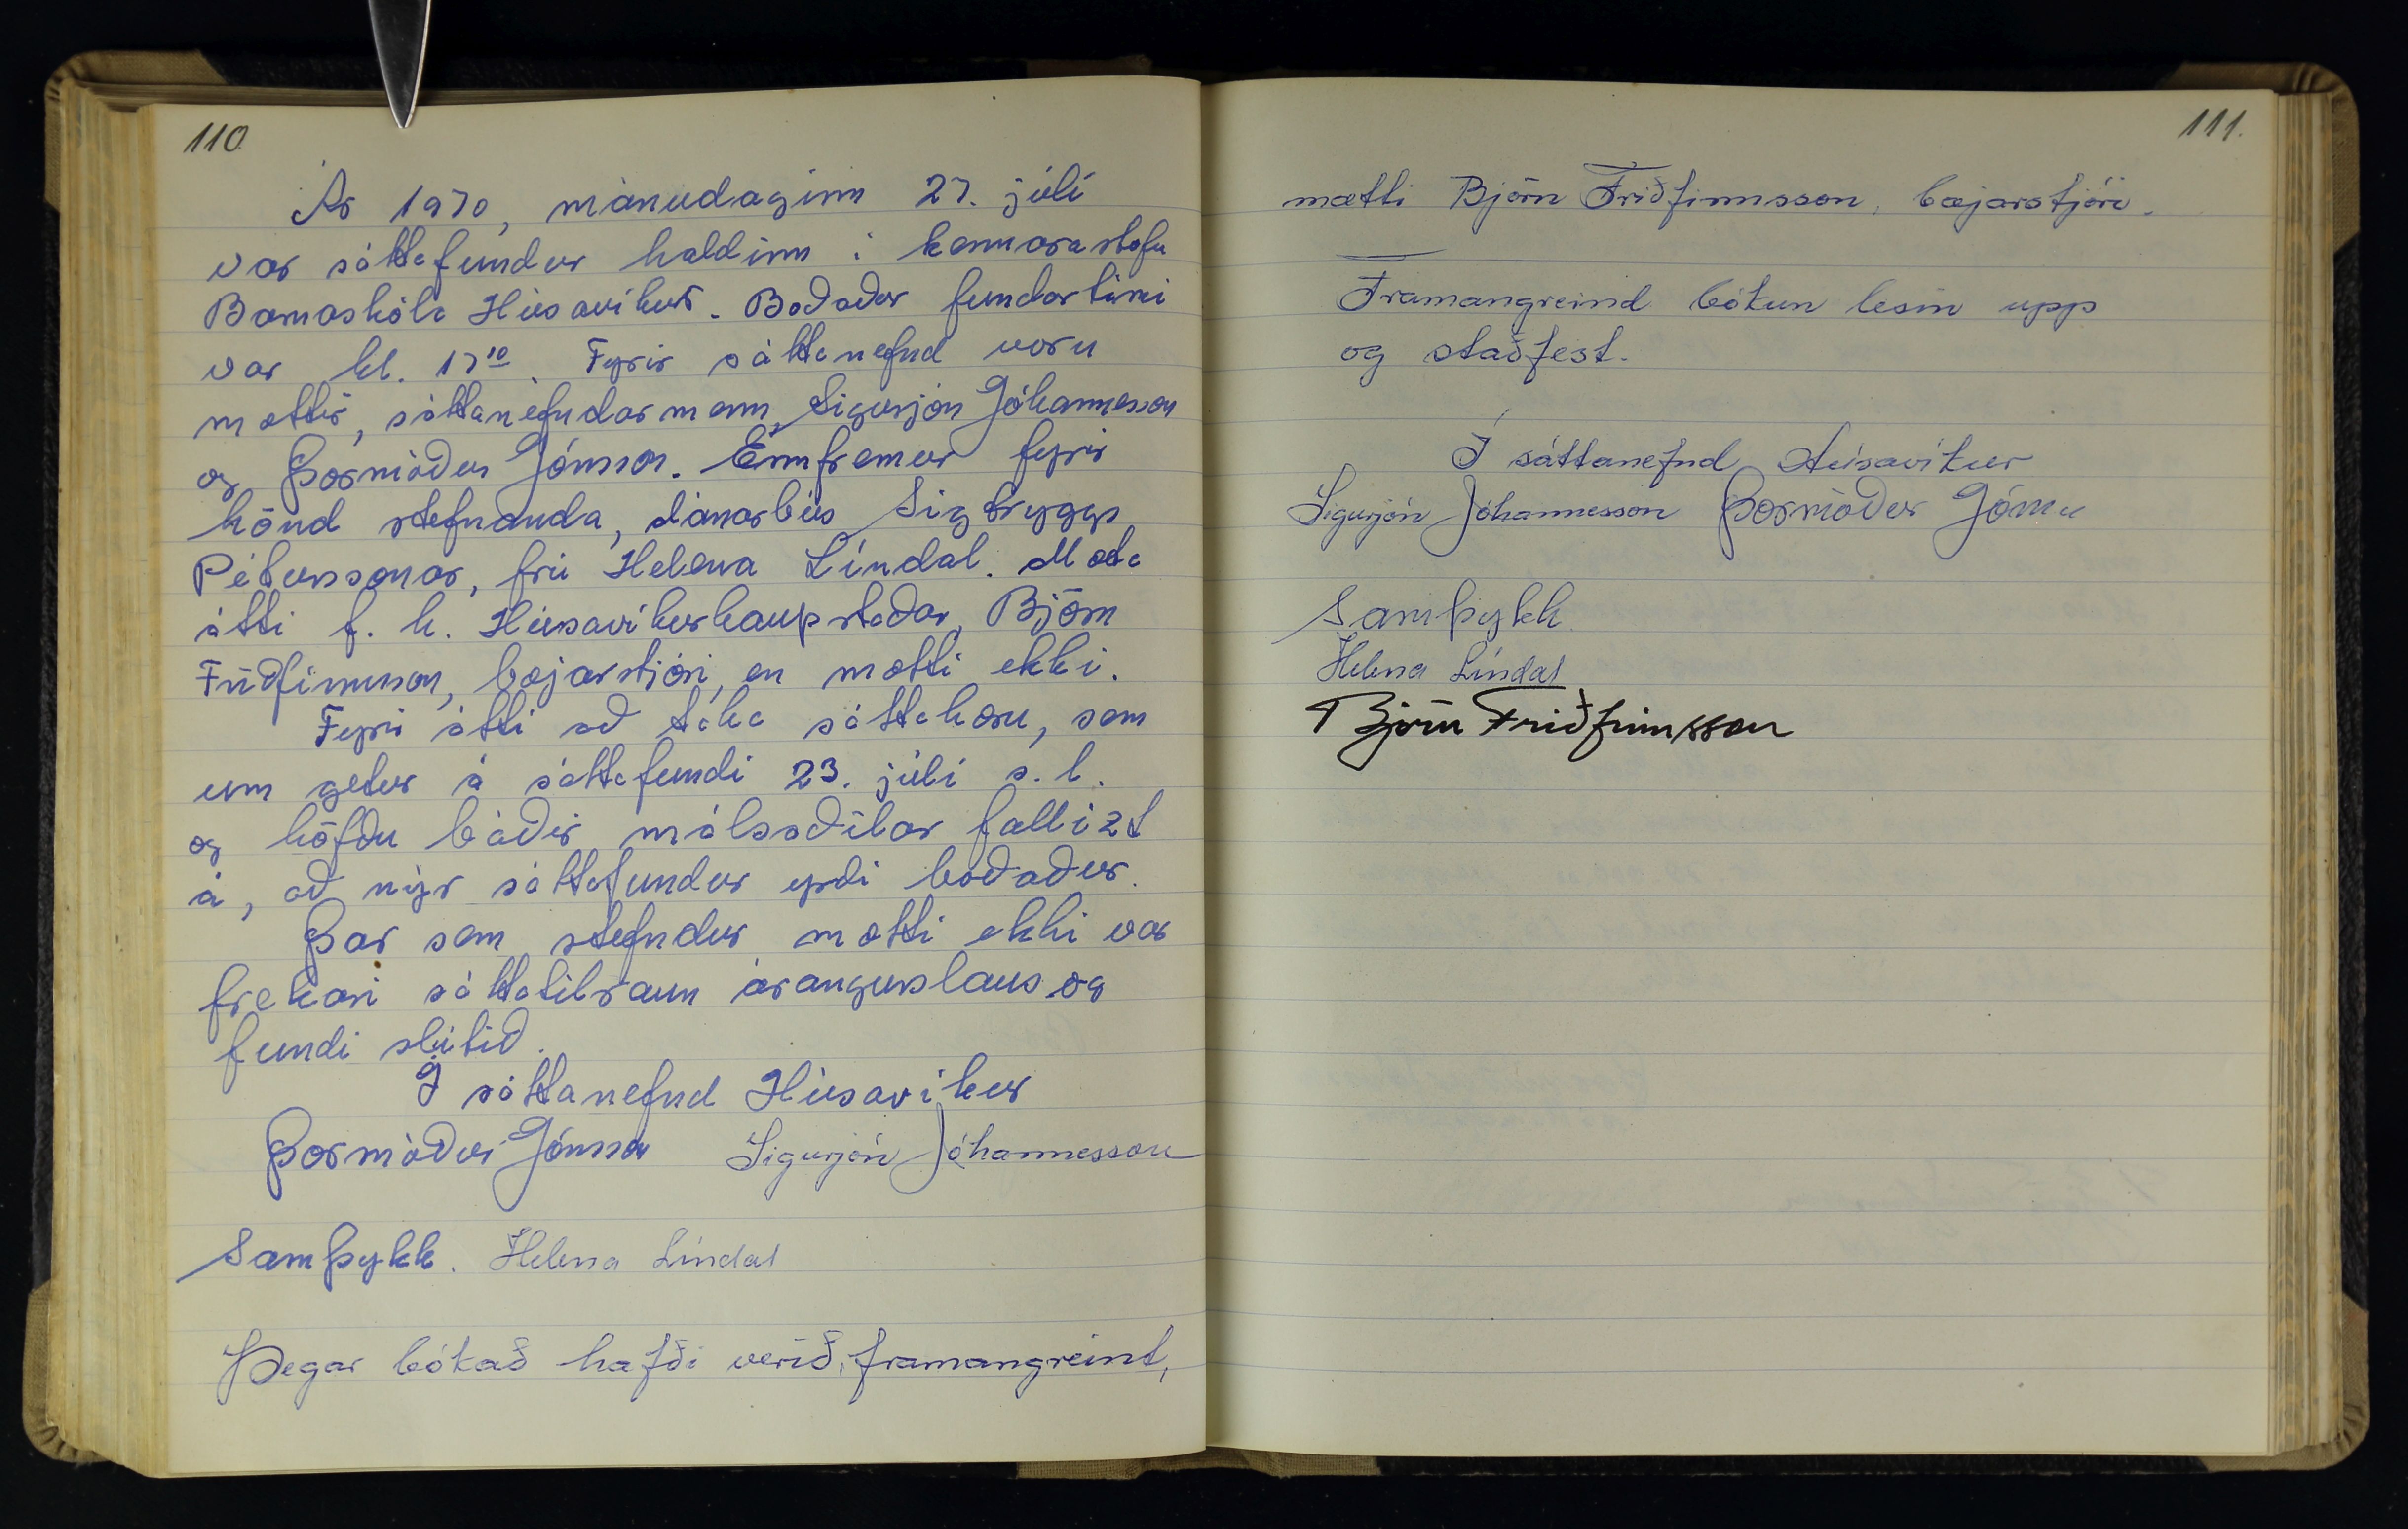 110.
Ár 1970, mánudaginn 27. júlí
var sáttafundur haldinn í kennarastofu
Barnaskóla Húsavíkur. Boðaður fundartími
var kl. 17¹⁰. Fyrir sáttanefnd voru
mættir, sáttanefndarmenn, Sigurjón Jóhannesson
og Þormóður Jónsson. Ennfremur fyrir
hönd stefnanda, dánarbús Sigtryggs
Péturssonar, frú Helena Líndal. Mæta
átti f. h. Húsavíkurkaupstaðar, Björn
Friðfinnsson, bæjarstjóri, en mætti ekki.
Fyrir átti að taka sáttakæru, sem
um getur á sáttafundi 23. júlí s.l.
og höfðu báðir málsaðilar fallizt
á, að nýr sáttafundur yrði boðaður.
Þar sem stefndur mætti ekki var
frekari sáttatilraun árangurslaus og
fundi slitið.
Í sáttanefnd Húsavíkur
Þormóður Jónsson Sigurjón Jóhannesson
Samþykk. Helena Líndal
Þegar bókað hafði verið, framangreint,
111.
mætti Björn Friðfinnsson, bæjarstjóri.
Framangreind bókun lesin upp
og staðfest.
Í sáttanefnd Húsavíkur
Sigurjón Jóhannesson Þormóður Jónsson
Samþykk
Helena Líndal
Björn Friðfinnsson